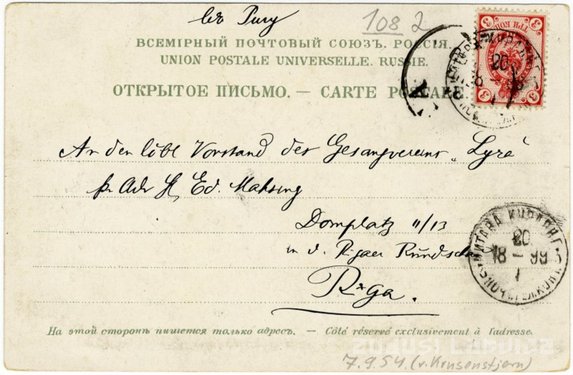 въ Ригу
108 2
ВСЕМІРНЫЙ ПОЧТОВЫЙ СОЮЗЪ. РОССІЯ.
UNION POSTALE UNIVERSELLE. RUSSIE.
ОТКРЫТОЕ ПИСЬМО. — CARTE POSTALE
An den löbl Vorstand des Gesangvereins „Lyra"
pr. Adr H. Ed. Mahsing
Domplatz 11/13
in d. Rigaer Rundschau
Riga.
МИТАВА КУРЛЯНД.
20
18 – 99
1
На этой сторонѣ пишется только адресъ. — Côté réservé exclusivement à l'adresse.
7.9.54 (v. Krusenstjern)